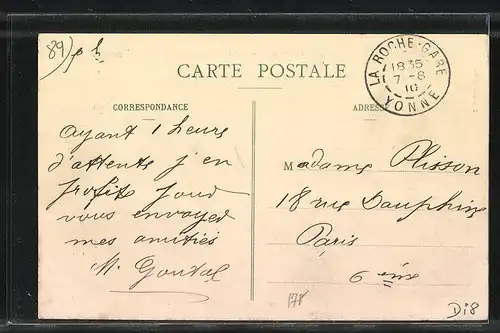 89)
CARTE POSTALE
LA ROCHE-GARE
1835
7-8
10
YONNE
CORRESPONDANCE
ADRESSE
ayant 1 heurs
d'attents j'en
profite pour
vous envoyed
mes amitiés
M. Goutal
Madame Plisson
18 rue Dauphine
Paris
6 ème
178
Di8